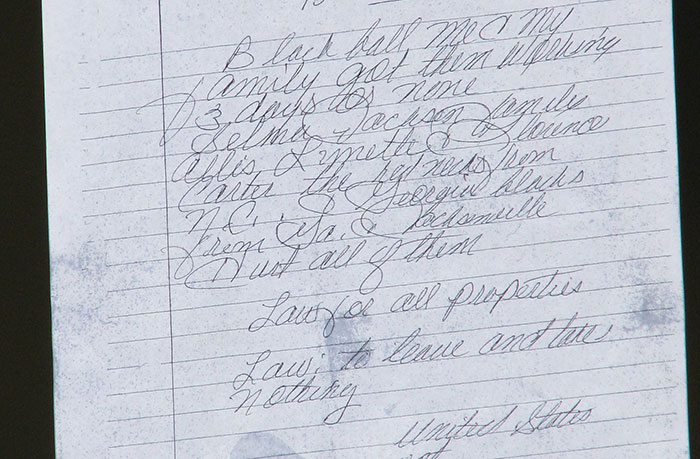 Black ball me & my
family got them working
3 days or none
Selma Jackson family
& Florence
Carter the rednecks from
N.C. & Georgia blacks
from Ga. & Jacksonville
Hurt all of them
Law for all properties
Law: to leave and take
nothing
United States